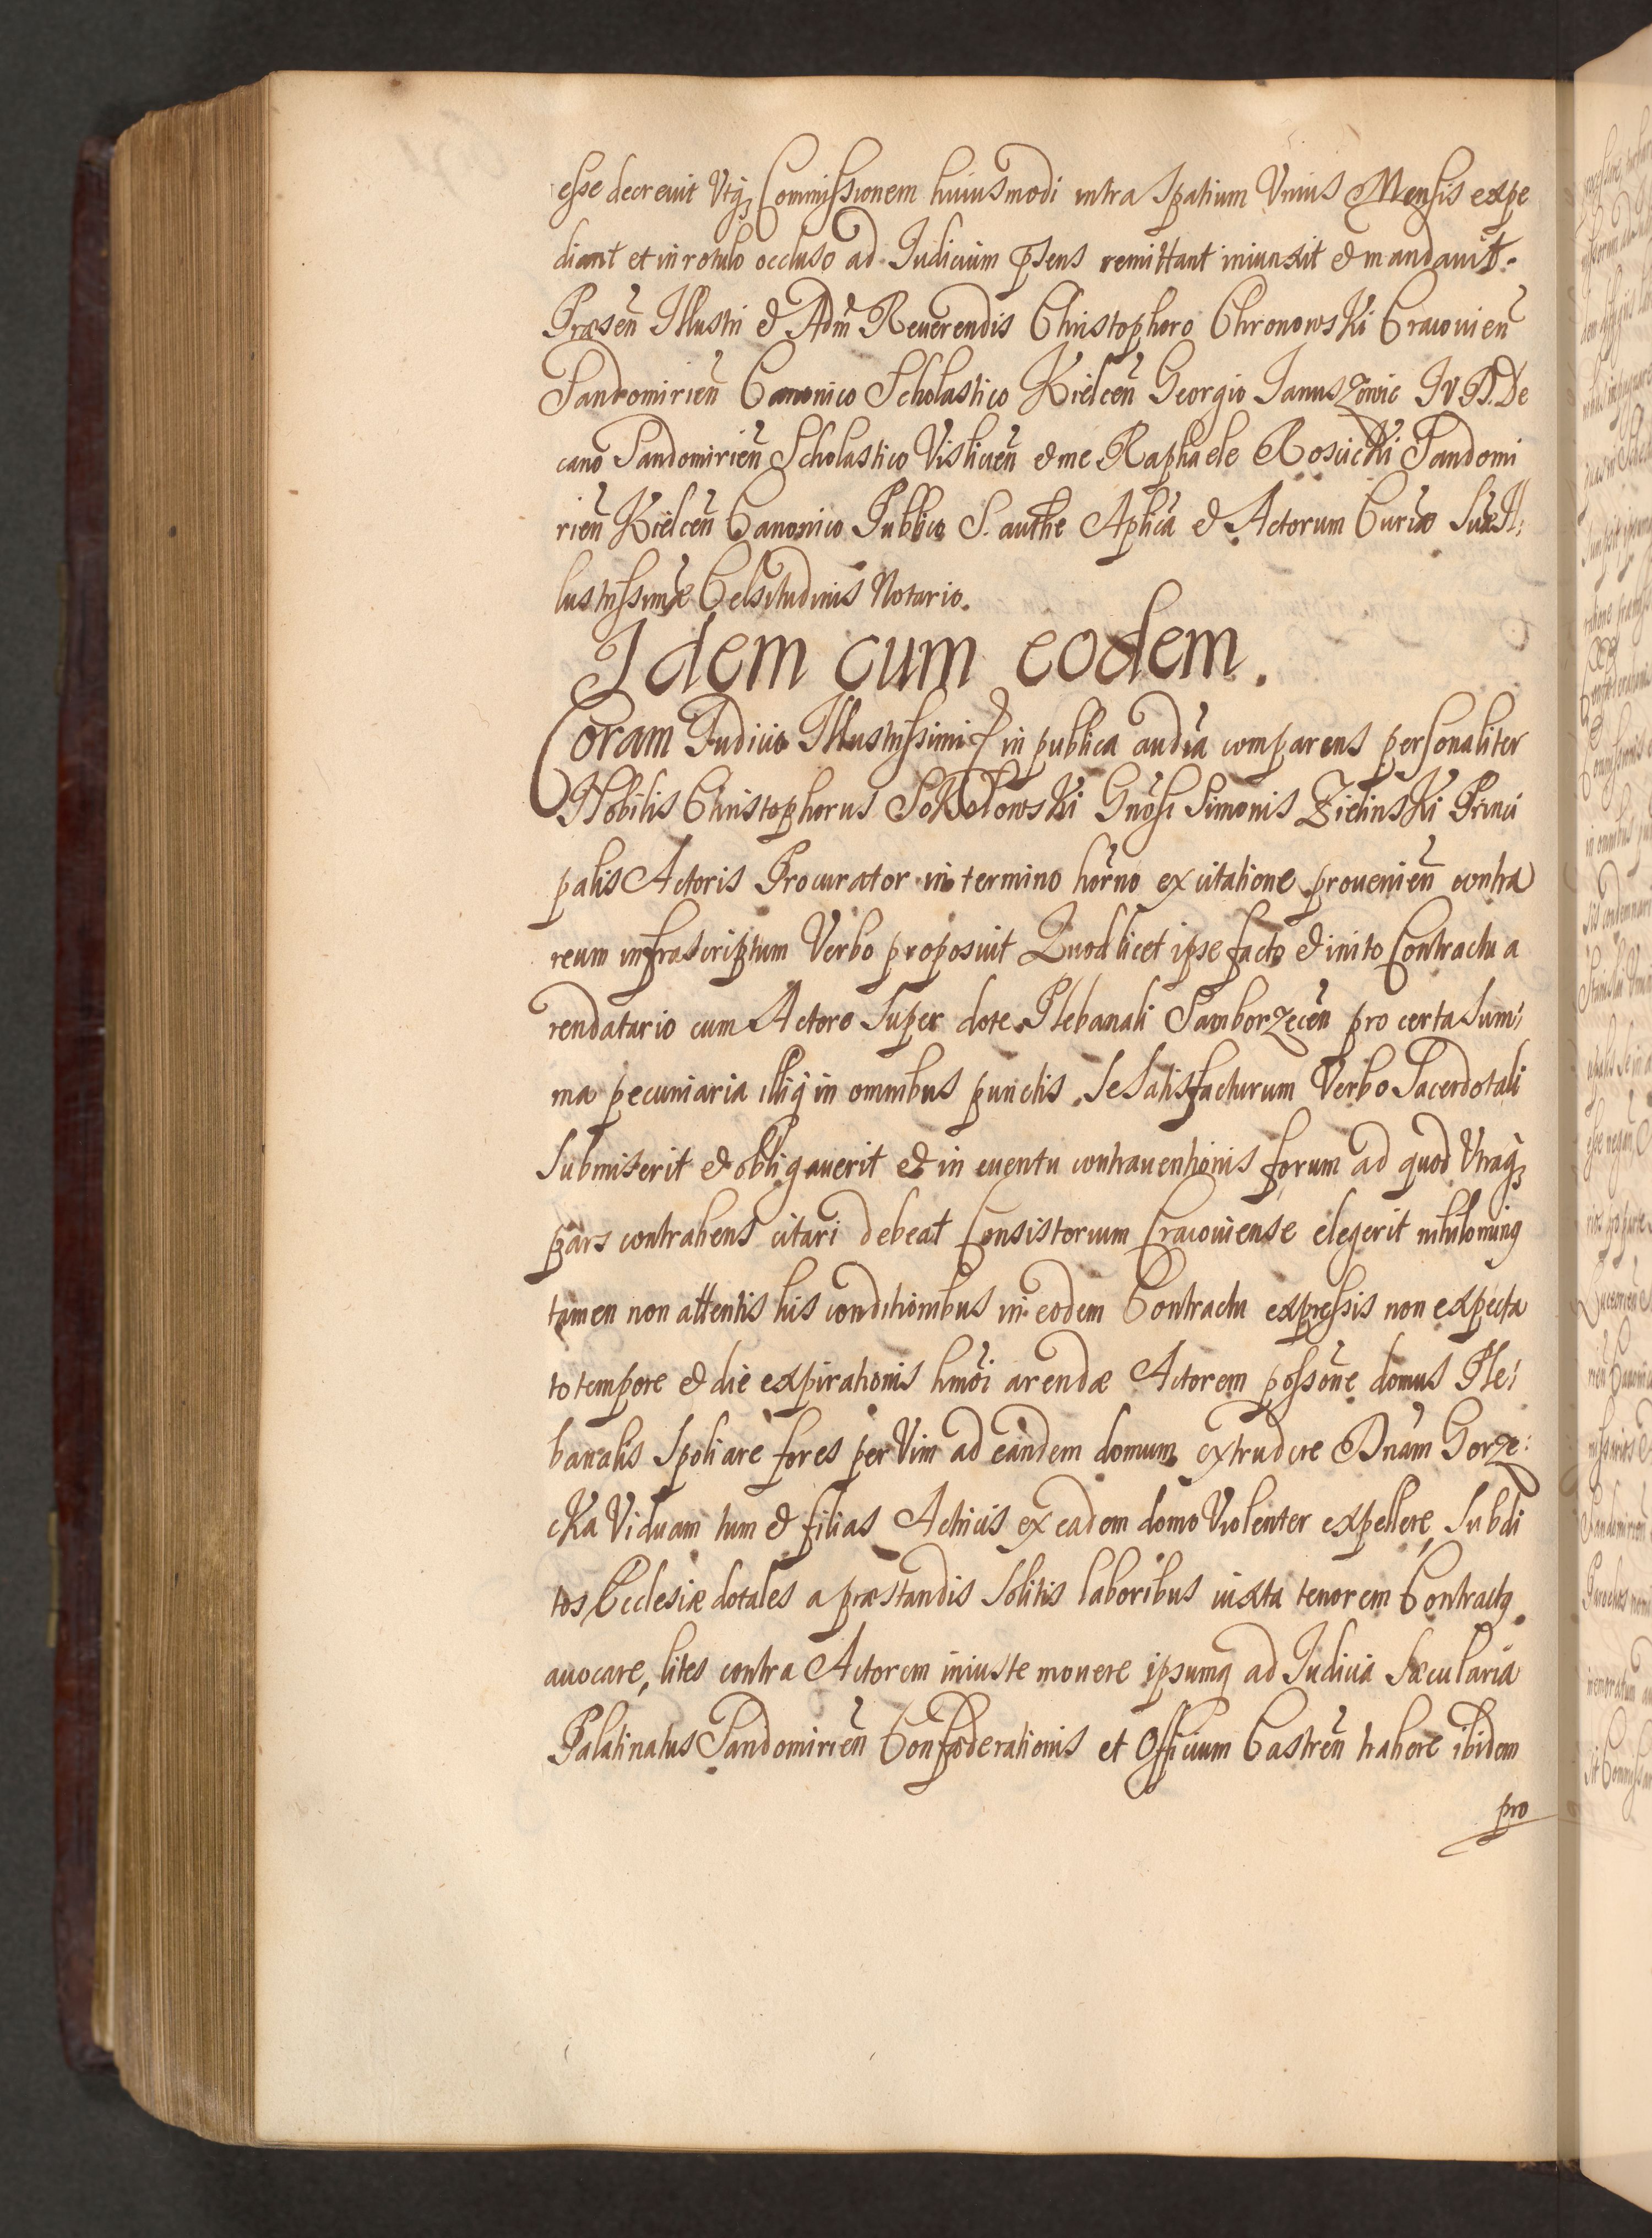 esse decreuit Utq Commissionem huiusmodi intra Spatium Unius Mensis expe
diant et in rotulo occluso ad Iudicium pnsens remittant iniunxit et mandauit.
Præsen̄ Illustri et Adm̄ Reuerendis Christophoro Chronowski Cracouien̄
Sandomirien̄ Canonico Scholastico Kielcen̄ Georgio Januszowic JVD. De
cano Sandomirien̄ Scholastico Vislicien̄ et me Raphaele Rosicki Sandomi
rien̄ Kielcen̄ Canonico Publico S. authe Aplica et Actorum Curiæ Suæ Il:
lustrissimæ Celsitudinis Notario.
Idem cum eodem.
Coram Iudicio Illustrissimi in publica audīa comparens personaliter
Nobilis Christophorus Sokolowski Gnōsi Simonis Zielinski Princi
palis Actoris Procurator in termino hōrno ex citatione prouenien̄ contra
reum infrascriptum Verbo proposuit Quod licet ipse facto et inito Contractu a
rendatario cum Actore Super dote Plebanali Samborzecen̄ pro certa Sum:
ma pecuniaria illiq in omnibus punctis Se Satisfacturum Verbo Sacerdotali
Submiserit et obligauerit et in euentu contrauentionis forum ad quod Utraq
pars contrahens citari debeat Consistorium Cracouiense elegerit nihilominq
tamen non attentis his conditionibus in eodem Contractu expressis non expecta
to tempore et die expirationis hmōi arendæ Actorem possōne domus Ple:
banalis Spoliare fores per Vim ad eandem domum extrudere Dnām Gorze:
cka Viduam tum et filias Actricis ex eadem domo Violenter expellere, Subdi
tos Ecclesiæ dotales a præstandis Solitis laboribus iuxta tenorem Contractq
auocare, lites contra Actorem iniuste mouere ipsumq ad Iudicia Sæcularia
Palatinatus Sandomirien̄ Confœderationis et Officium Castren̄ trahere ibidem
pro